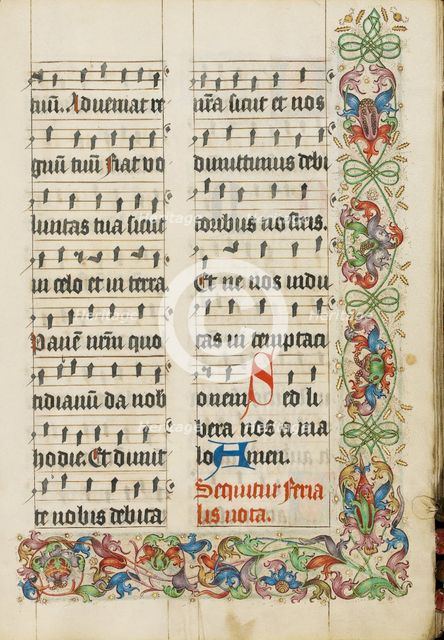 tuū. Adveniat re
gnū tuū Fiat vo
luntas tua sicut
in celo et in terra
Panē nr̄m quo
tidianū da nob
hodie. Et dimit
te nobis debita
nr̄a sicut et nos
dimittimus debi
toribus nostris.
Et ne nos indu
cas in temptaci
onem Sed li
bera nos a ma
lo Amen.
Sequitur feria
lis nota.